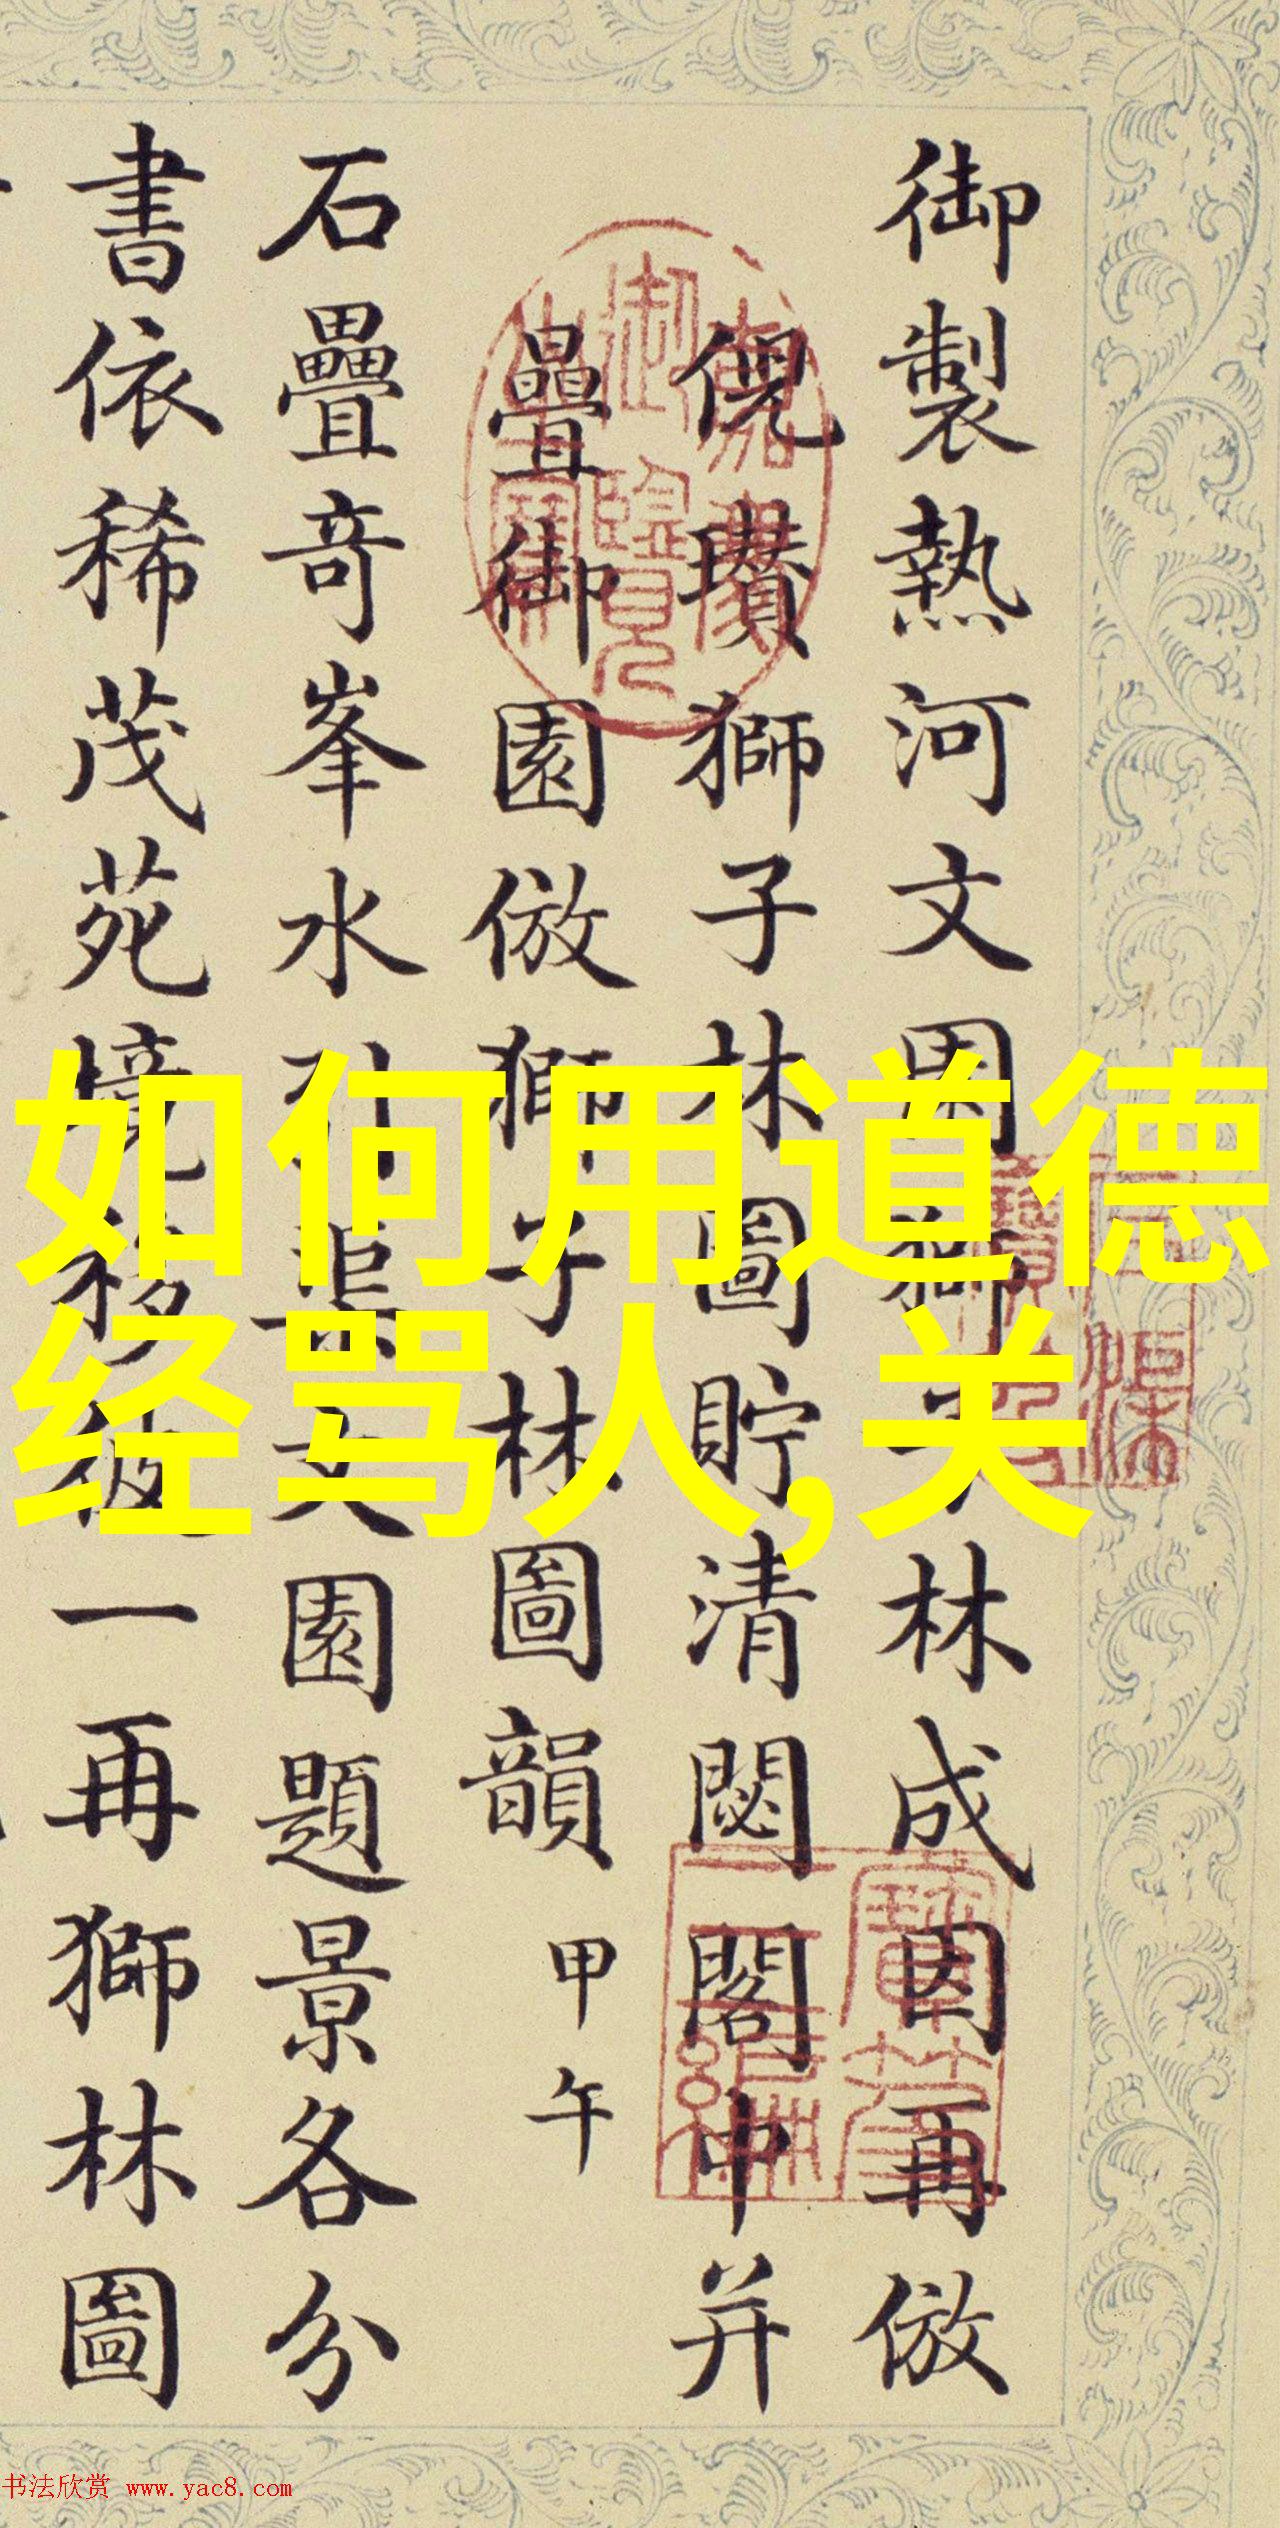 御製熱河文園獅子林成因再倣
倪瓚獅子林圖貯清閟閣中并
疊御園倣獅子林圖韻 甲午
石疊奇峯水引渠文園題景各分
書依稀茂苑境移彼一再獅林圖
如何用道德
经骂人,关
书法欣赏 www.yac8.com